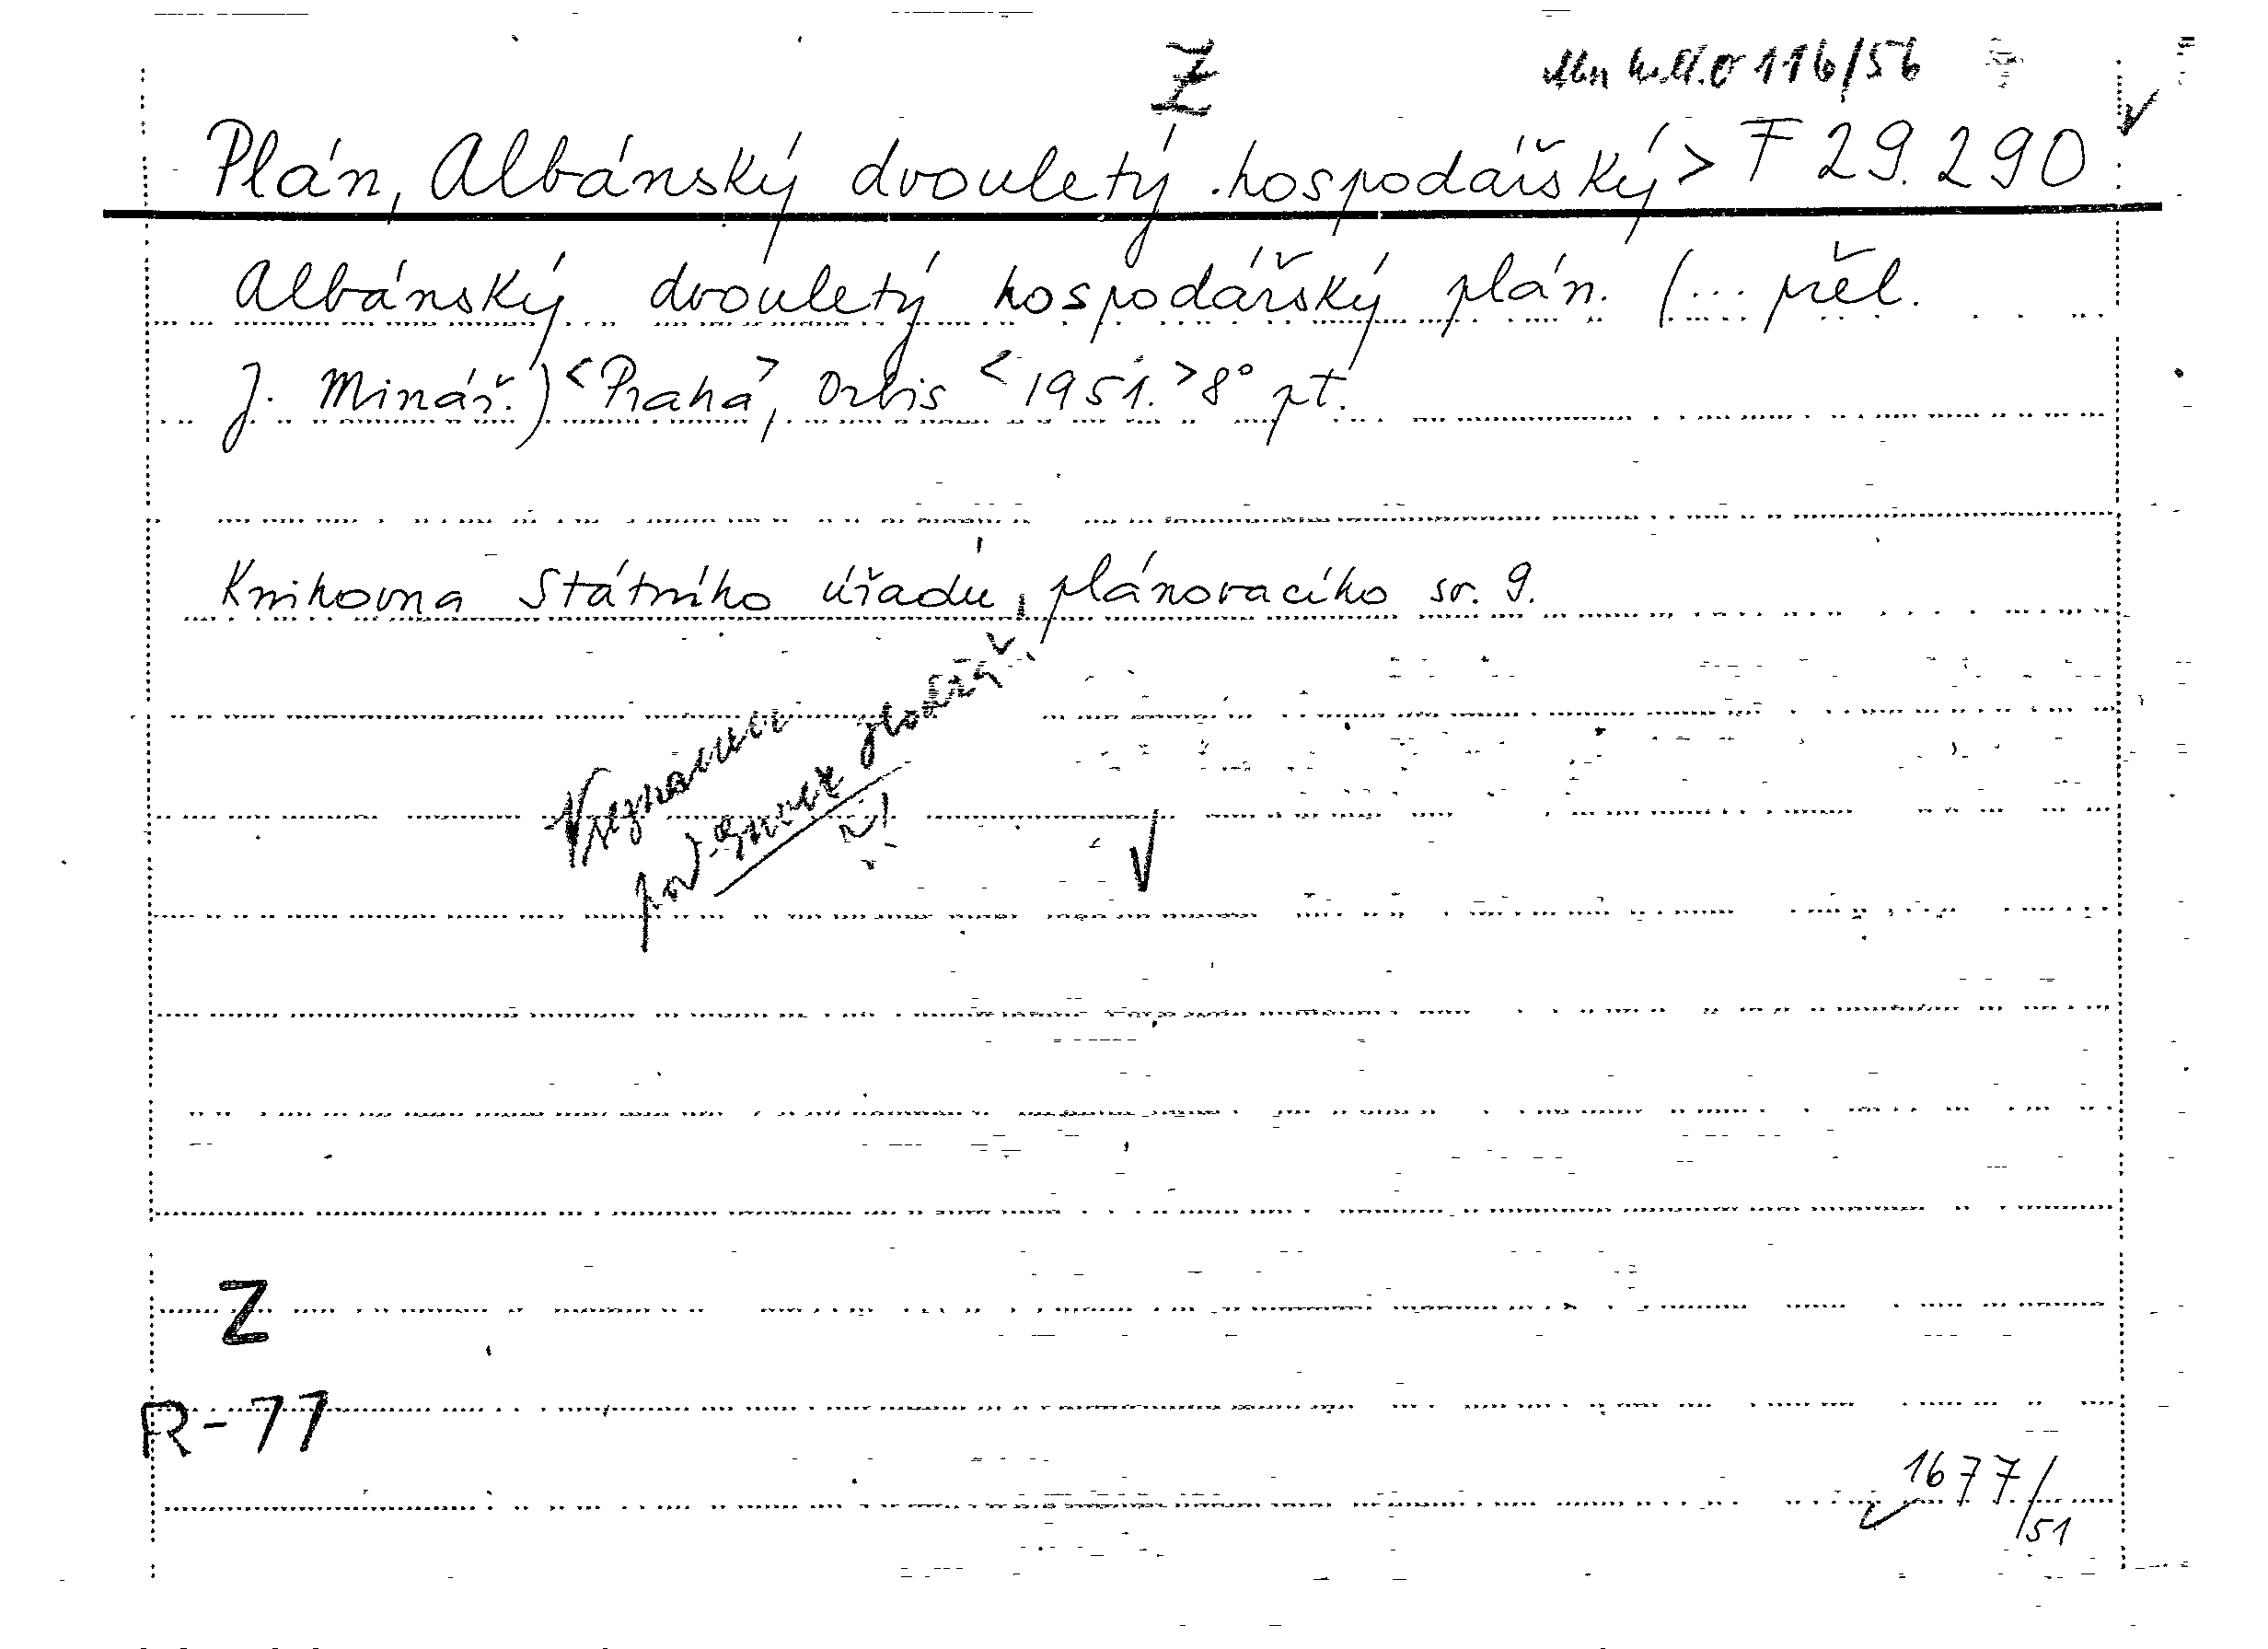 Z
116/56
Plán, Albánský dvouletý hospodářský> F 29.290
Albánský dvouletý hospodářský plán. (... přel.
J. Minář.) <Praha>, Orbis <1951.> 8° pt.
Knihovna Státního úřadu plánovacího sv. 9.
Z
R-77
1677/51